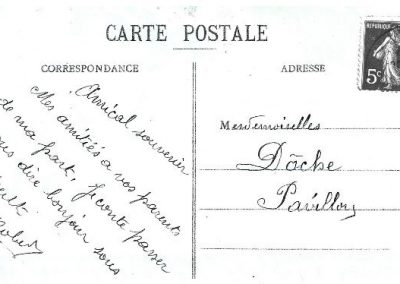 CARTE POSTALE
CORRESPONDANCE
ADRESSE
REPUBLIQUE
5c
Amical souvenir
Mes amitiés a vos parents
de ma part, Je conte passer
vous dire bonjour sous
Mesdemoiselles
Dôche
Pavillon